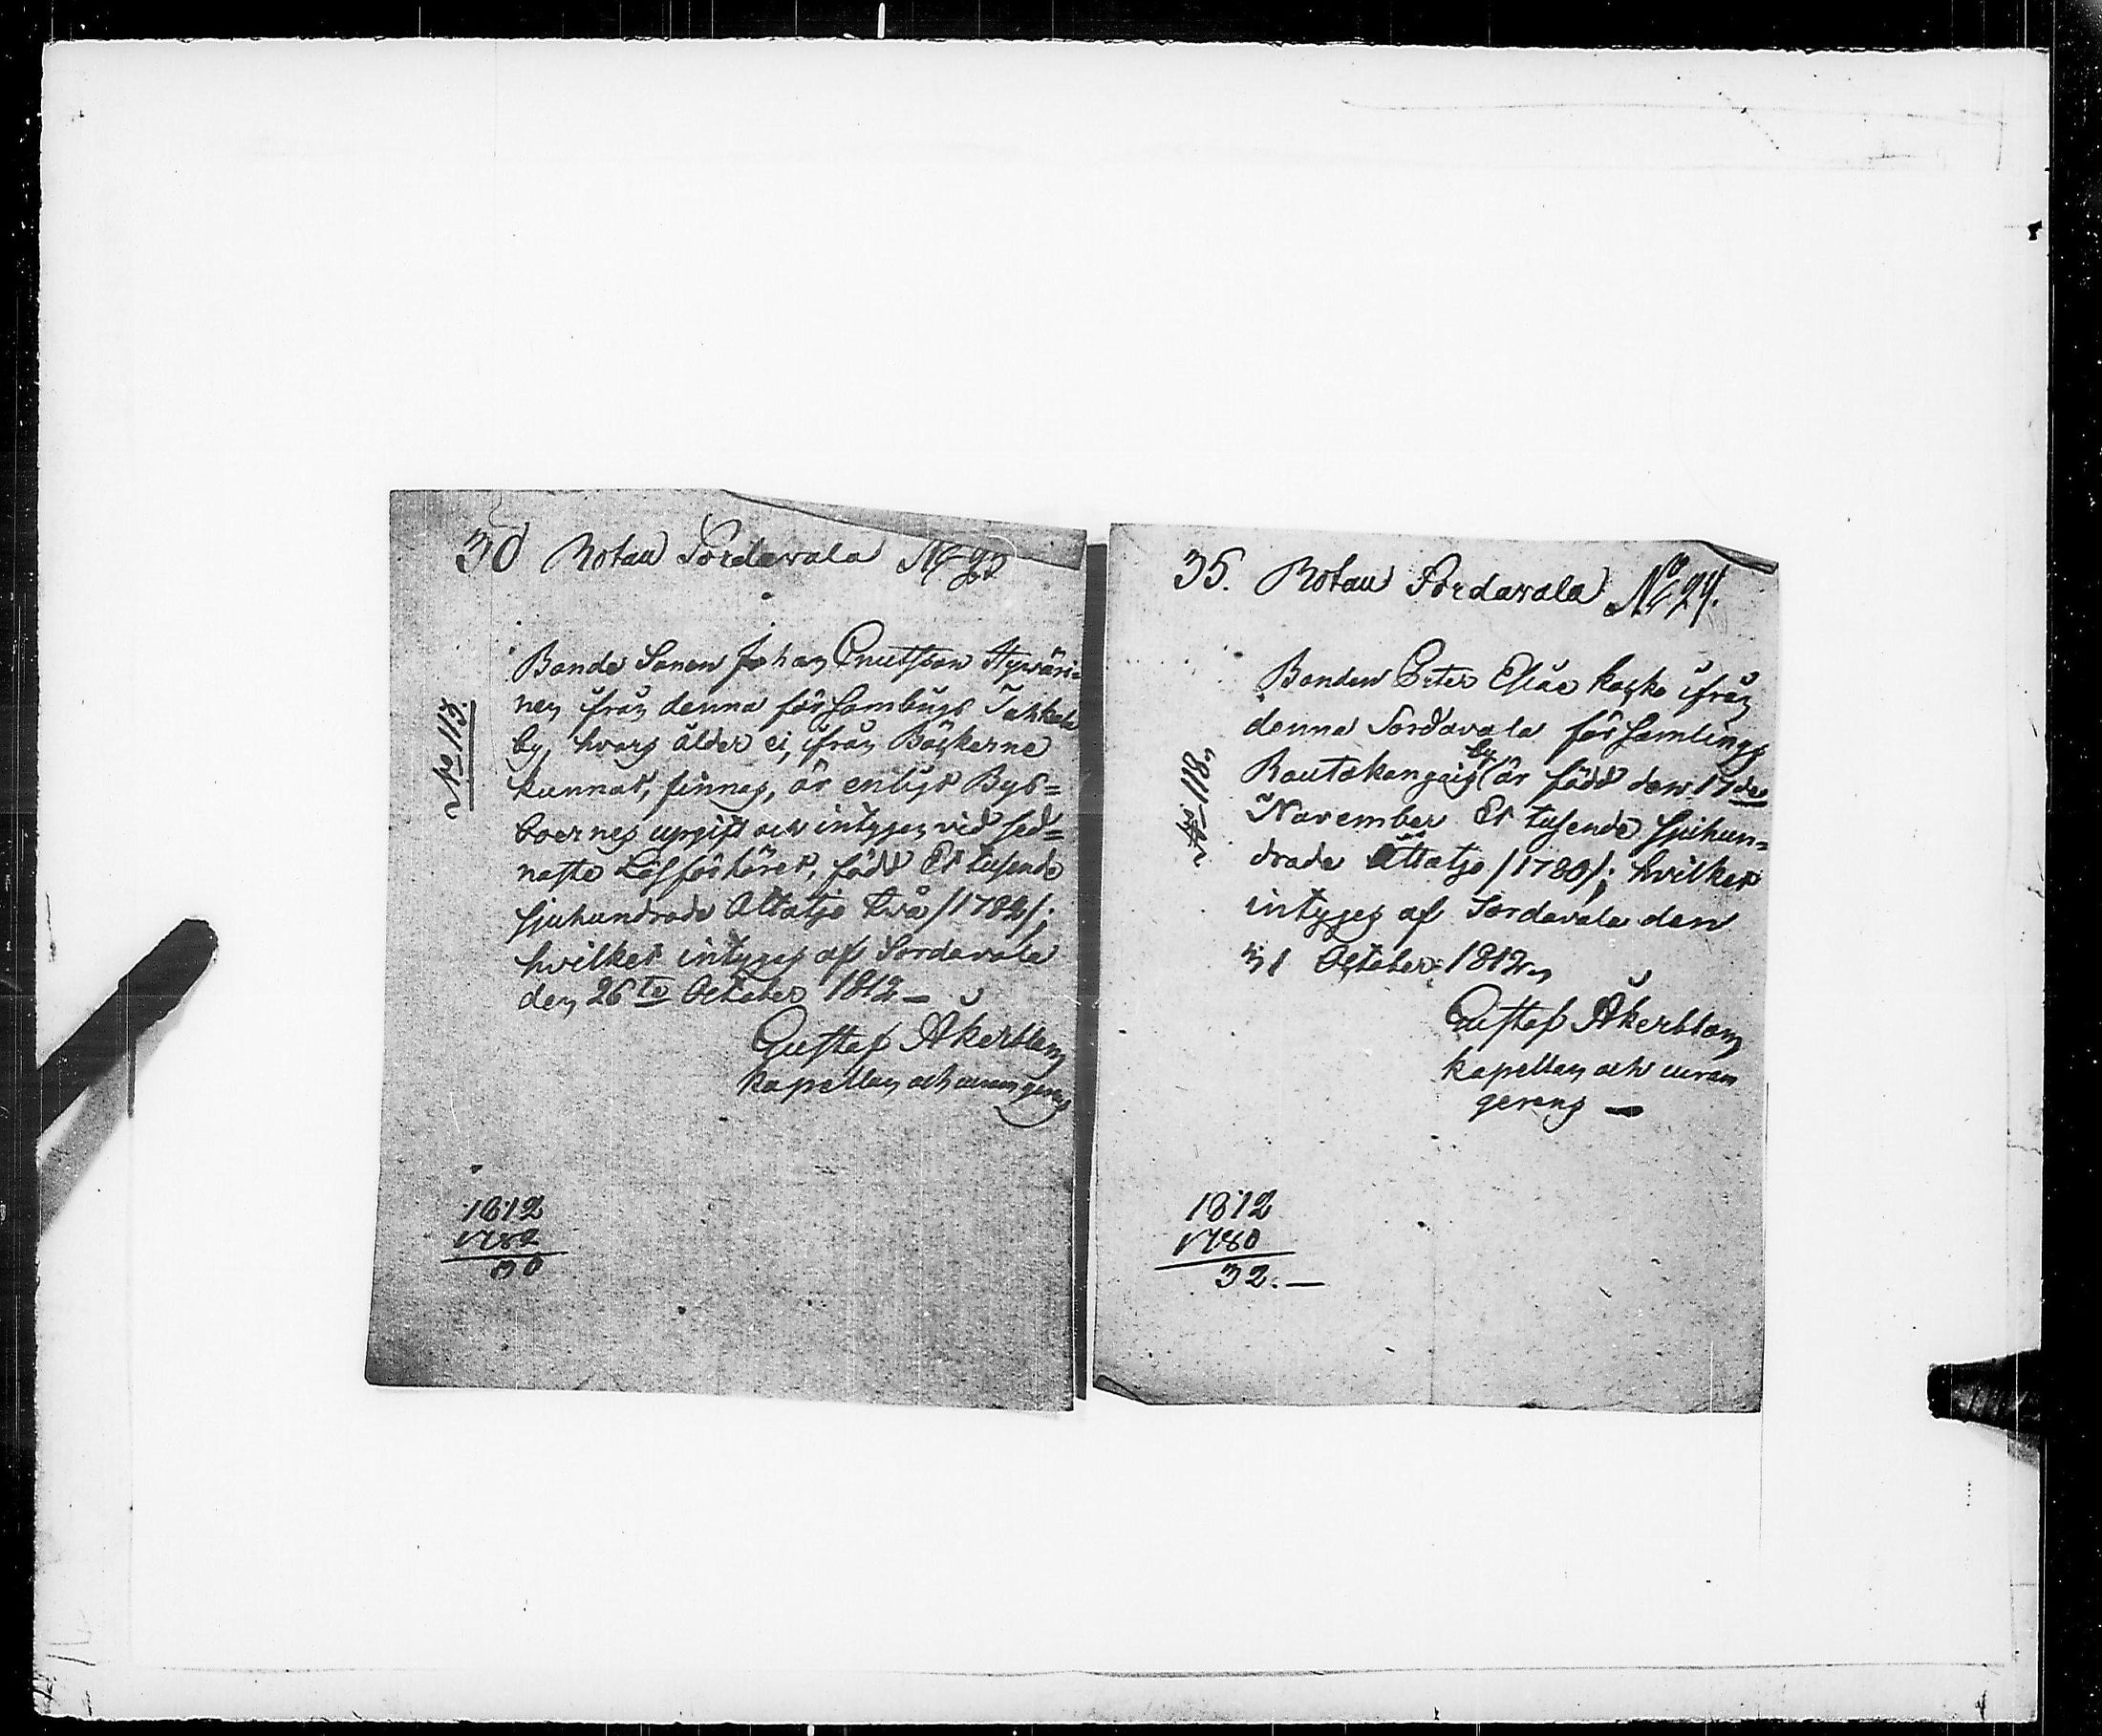 30 Rotau Sordavala No 23
No 113.
Bonde Sonen Johan Cnutsson Hyväri=
nen ifrån denna församlings Tahkola
by, hvars ålder ej, ifrån Böckerne
kunnat, finnas, är enligt Bys=
boernes upgift och intygen vid sed=
naste Läsförhöret, född Et tusende
sjuhundrade Åttatjo två /1782/;
hvilket intygas af Sordavala
den 26te October 1812 —
Gustaf Åkerblom
Kapellan och curam gerens
1812
1782
30
35. Rotau Sordavala No 24.
No 118
Bonden Peter Eliæ Kosko ifrån
denna Sordavala församlings
Rautakangais by är född den 17de
November Et tusende sjuhun=
drade Åttatjo /1780/; hvilket
intyges af Sordavala den
31 October 1812
Gustaf Åkerblom
Kapellan och curam
gerens —
1812
1780
32. —